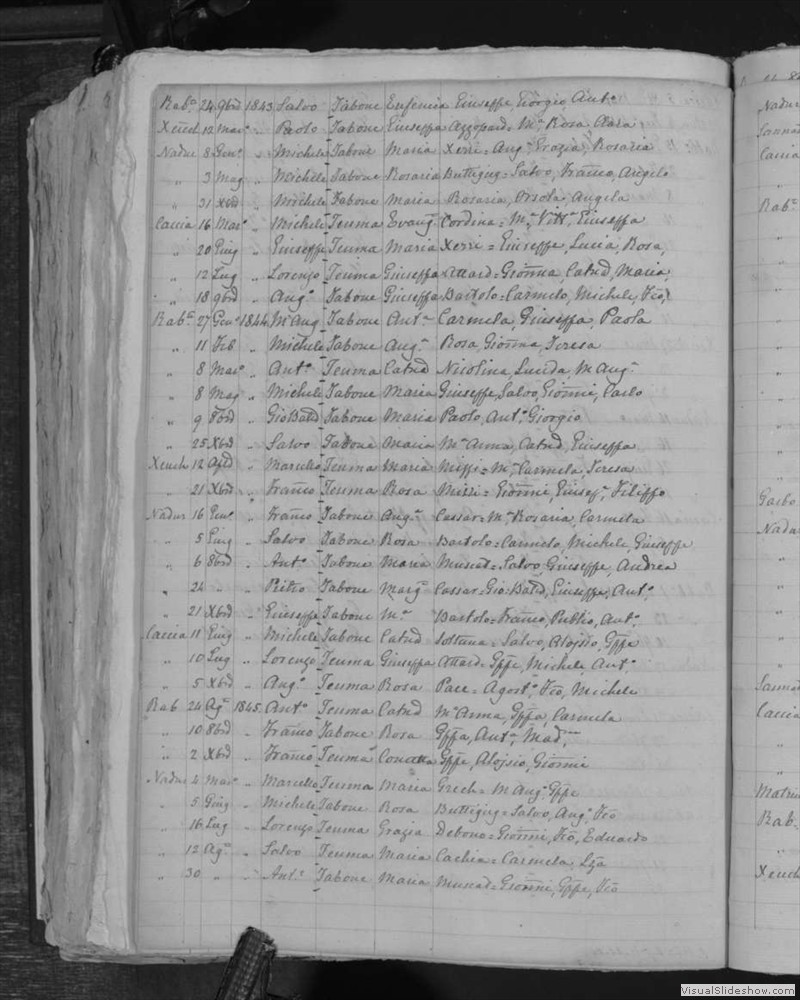 Rab.ᵃ 24 9brê 1843 Salvo Tabone Eufemia Giuseppe, Giorgio, Ant.º
Xeuch 12 Mar.º " Paolo Tabone Giuseppa Azzopard= M.ª Rosa, Clara
Nadur 8 Gen.º " Michele Tabone Maria Xerri= Aug.ª Grazia, Rosaria
" 3 Mag " Michele Tabone Rosaria Buttigieg= Salvo, Franco, Angelo
" 31 Xbrê " Michele Tabone Maria Rosaria, Orsola, Angela
Caccia 16 Mar.º " Michele Teuma Evang.ª Cordina= M.ª Vittª, Giuseffa
" 20 Giug " Giuseppe Teuma Maria Xerri= Giuseppe, Lucia, Rosa,
" 12 Lug " Lorenzo Teuma Giuseppa Attard= Gionna, Catnd, Maria,
" 18 9brê " Aug.º Tabone Giuseppa Bartolo= Carmelo, Michele,
Rab.ᵃ 27 Gen.º 1844 M. Aug Tabone Ant.ª Carmela, Giuseppa, Paola
" 11 Feb " Michele Tabone Aug.ª Rosa, Gionna, Teresa
" 8 Mar.º " Ant.º Teuma Catnd Nicolina, Lucida, M. Aug.ª
" 8 Mag " Michele Tabone Maria Giuseppe, Salvo, Gionni, Carlo
" 9 " Gio Batta Tabone Maria Paolo, Ant.º Giorgio
" 25 Xbrê " Salvo Tabone Maria M.ª Anna, Catnd, Giuseppa
Xeuch 12 " Marcello Teuma Maria Mizzi= M.ª Carmela, Teresa
" 21 Xbrê " Franco Teuma Rosa Mizzi= Gionni, Giusep.ᵉ, Filippo
Nadur 16 Gen.º " Franco Tabone Aug.ª Cassar= M.ª Rosaria, Carmela
" 5 Giug " Salvo Tabone Rosa Bartolo= Carmelo, Michele, Giuseppe
" 6 8brê " Ant.º Tabone Maria Muscat= Salvo, Giuseppe, Andrea
" 24 " " Pietro Tabone Marg.ª Cassar= Gio: Batta, Giuseppe, Ant.º
" 21 Xbrê " Giuseppe Tabone M.ª Bartolo= Franco, Publio, Ant.º
Caccia 11 Giug " Michele Tabone Catnd Soltana= Salvo, Alojsio, Gppe
" 10 Lug " Lorenzo Teuma Giuseppa Attard= Gppe, Michele, Ant.º
" 5 Xbrê " Aug.º Teuma Rosa Pace= Agost.º, Michele
Rab 24 Ag.º 1845 Ant.º Teuma Catnd M.ª Anna, Gppa, Carmela
" 10 8brê " Franco Tabone Rosa Gppa, Ant.ª, Mad.
" 2 Xbrê " Franco Teuma Concetta Gppe, Alojsio, Gionni
Nadur 4 Mar.º " Marcello Teuma Maria Grech= M. Aug.ª Gppe
" 5 Giug " Michele Tabone Rosa Buttigieg= Salvo, Aug.º
" 16 Lug " Lorenzo Teuma Grazia Debono= Gionni, Eduardo
" 12 Ag.º " Salvo Teuma Maria Cachia= Carmela, Lza
" 30 " " Ant.º Tabone Maria Muscad= Gionni, Gppe
Nadur
Sannat
Caccia
Rab.ᵃ
Garbo
Nadur
Sannat
Caccia
Rab.
Xeuch
VisualSlideshow.com